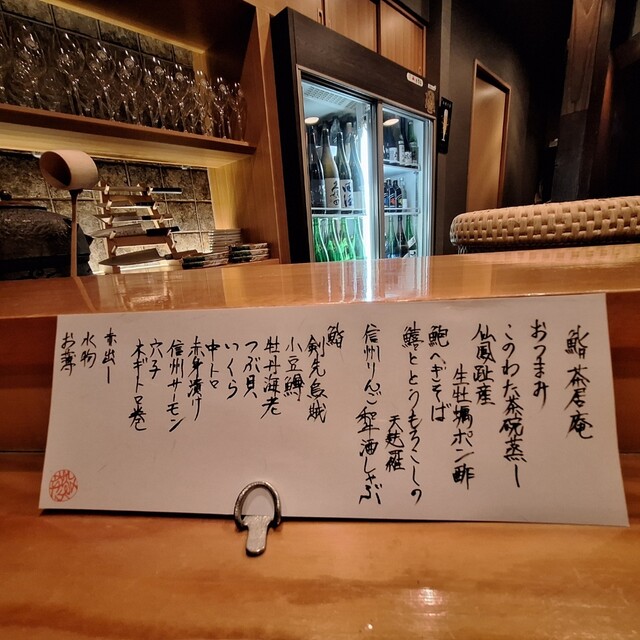 鮨 茶居庵
おつまみ
このわた茶碗蒸し
仙鳳趾産
生牡蠣ポン酢
鮑へぎそば
鱧ととうもろこしの
天麩羅
信州りんご和牛酒しゃぶ
鮨
剣先烏賊
小豆鱒
牡丹海老
つぶ貝
いくら
中トロ
赤身漬け
信州サーモン
穴子
ネギトロ巻
赤出し
水物
お薄